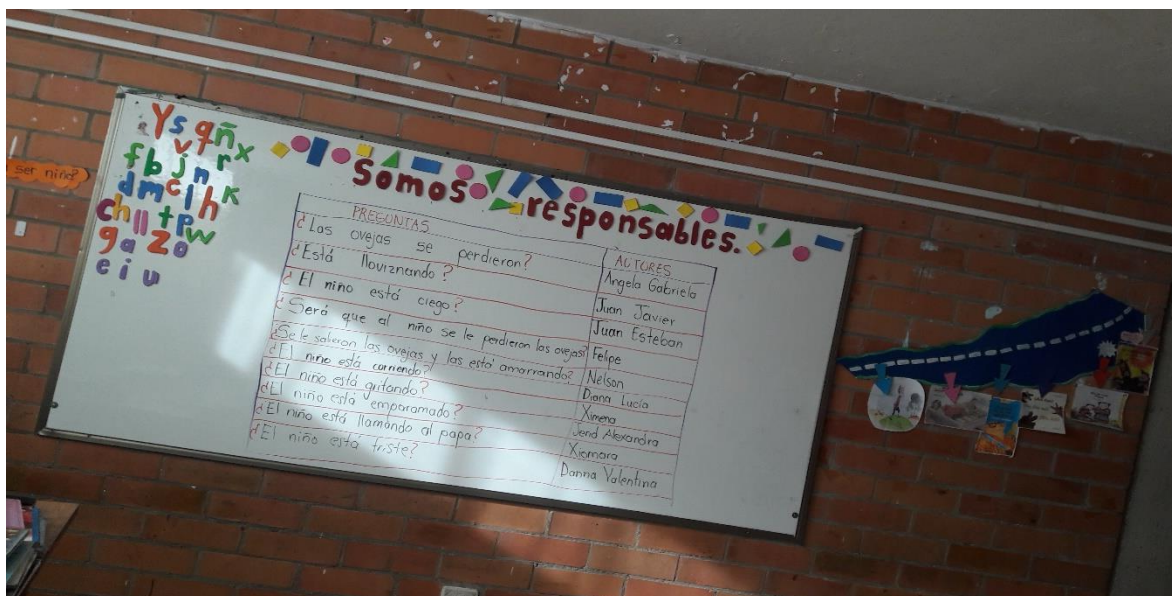 Y s q ñ
f b v j n r x
d m c l h k
ch ll t p w
g a z o
e i u
ser niño?
Somos responsables.
PREGUNTAS AUTORES
¿Las ovejas se perdieron? Angela Gabriela
¿Está lloviznando? Juan Javier
¿El niño está ciego? Juan Esteban
¿Será que al niño se le perdieron las ovejas? Felipe
¿Se le salieron las ovejas y las está amarrando? Nelson
¿El niño está corriendo? Diana Lucia
¿El niño está gritando? Ximena
¿El niño está emparamado? Jend Alexandra
¿El niño está llamando al papa? Xiomara
¿El niño está triste? Danna Valentina